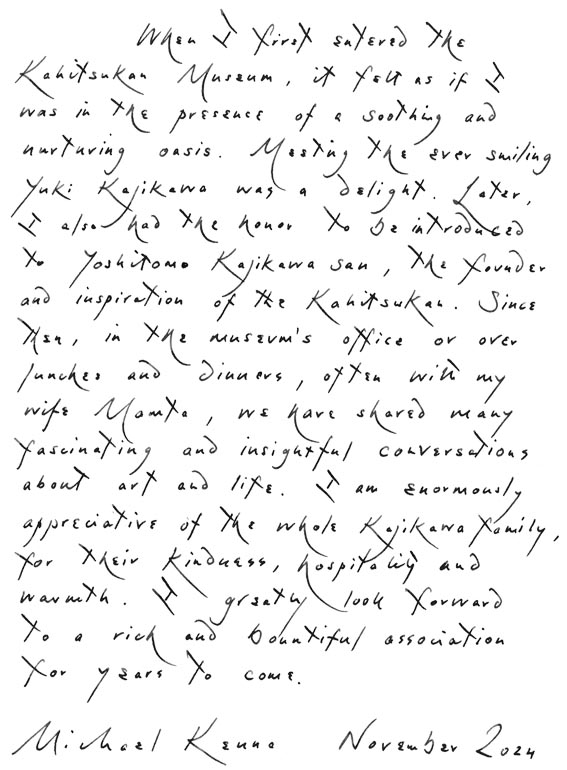 When I first entered the
Kahitsukan Museum, it felt as if I
was in the presence of a soothing and
nurturing oasis. Meeting the ever smiling
Yuki Kajikawa was a delight. Later,
I also had the honor to be introduced
to Yoshitomo Kajikawa san, the founder
and inspiration of the Kahitsukan. Since
then, in the museum's office or over
lunches and dinners, often with my
wife Mamta, we have shared many
fascinating and insightful conversations
about art and life. I am enormously
appreciative of the whole Kajikawa family,
for their kindness, hospitality and
warmth. I greatly look forward
to a rich and bountiful association
for years to come.
Michael Kenna November 2024